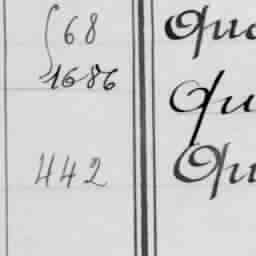 68 Qua
1686 Qu
442 Qu